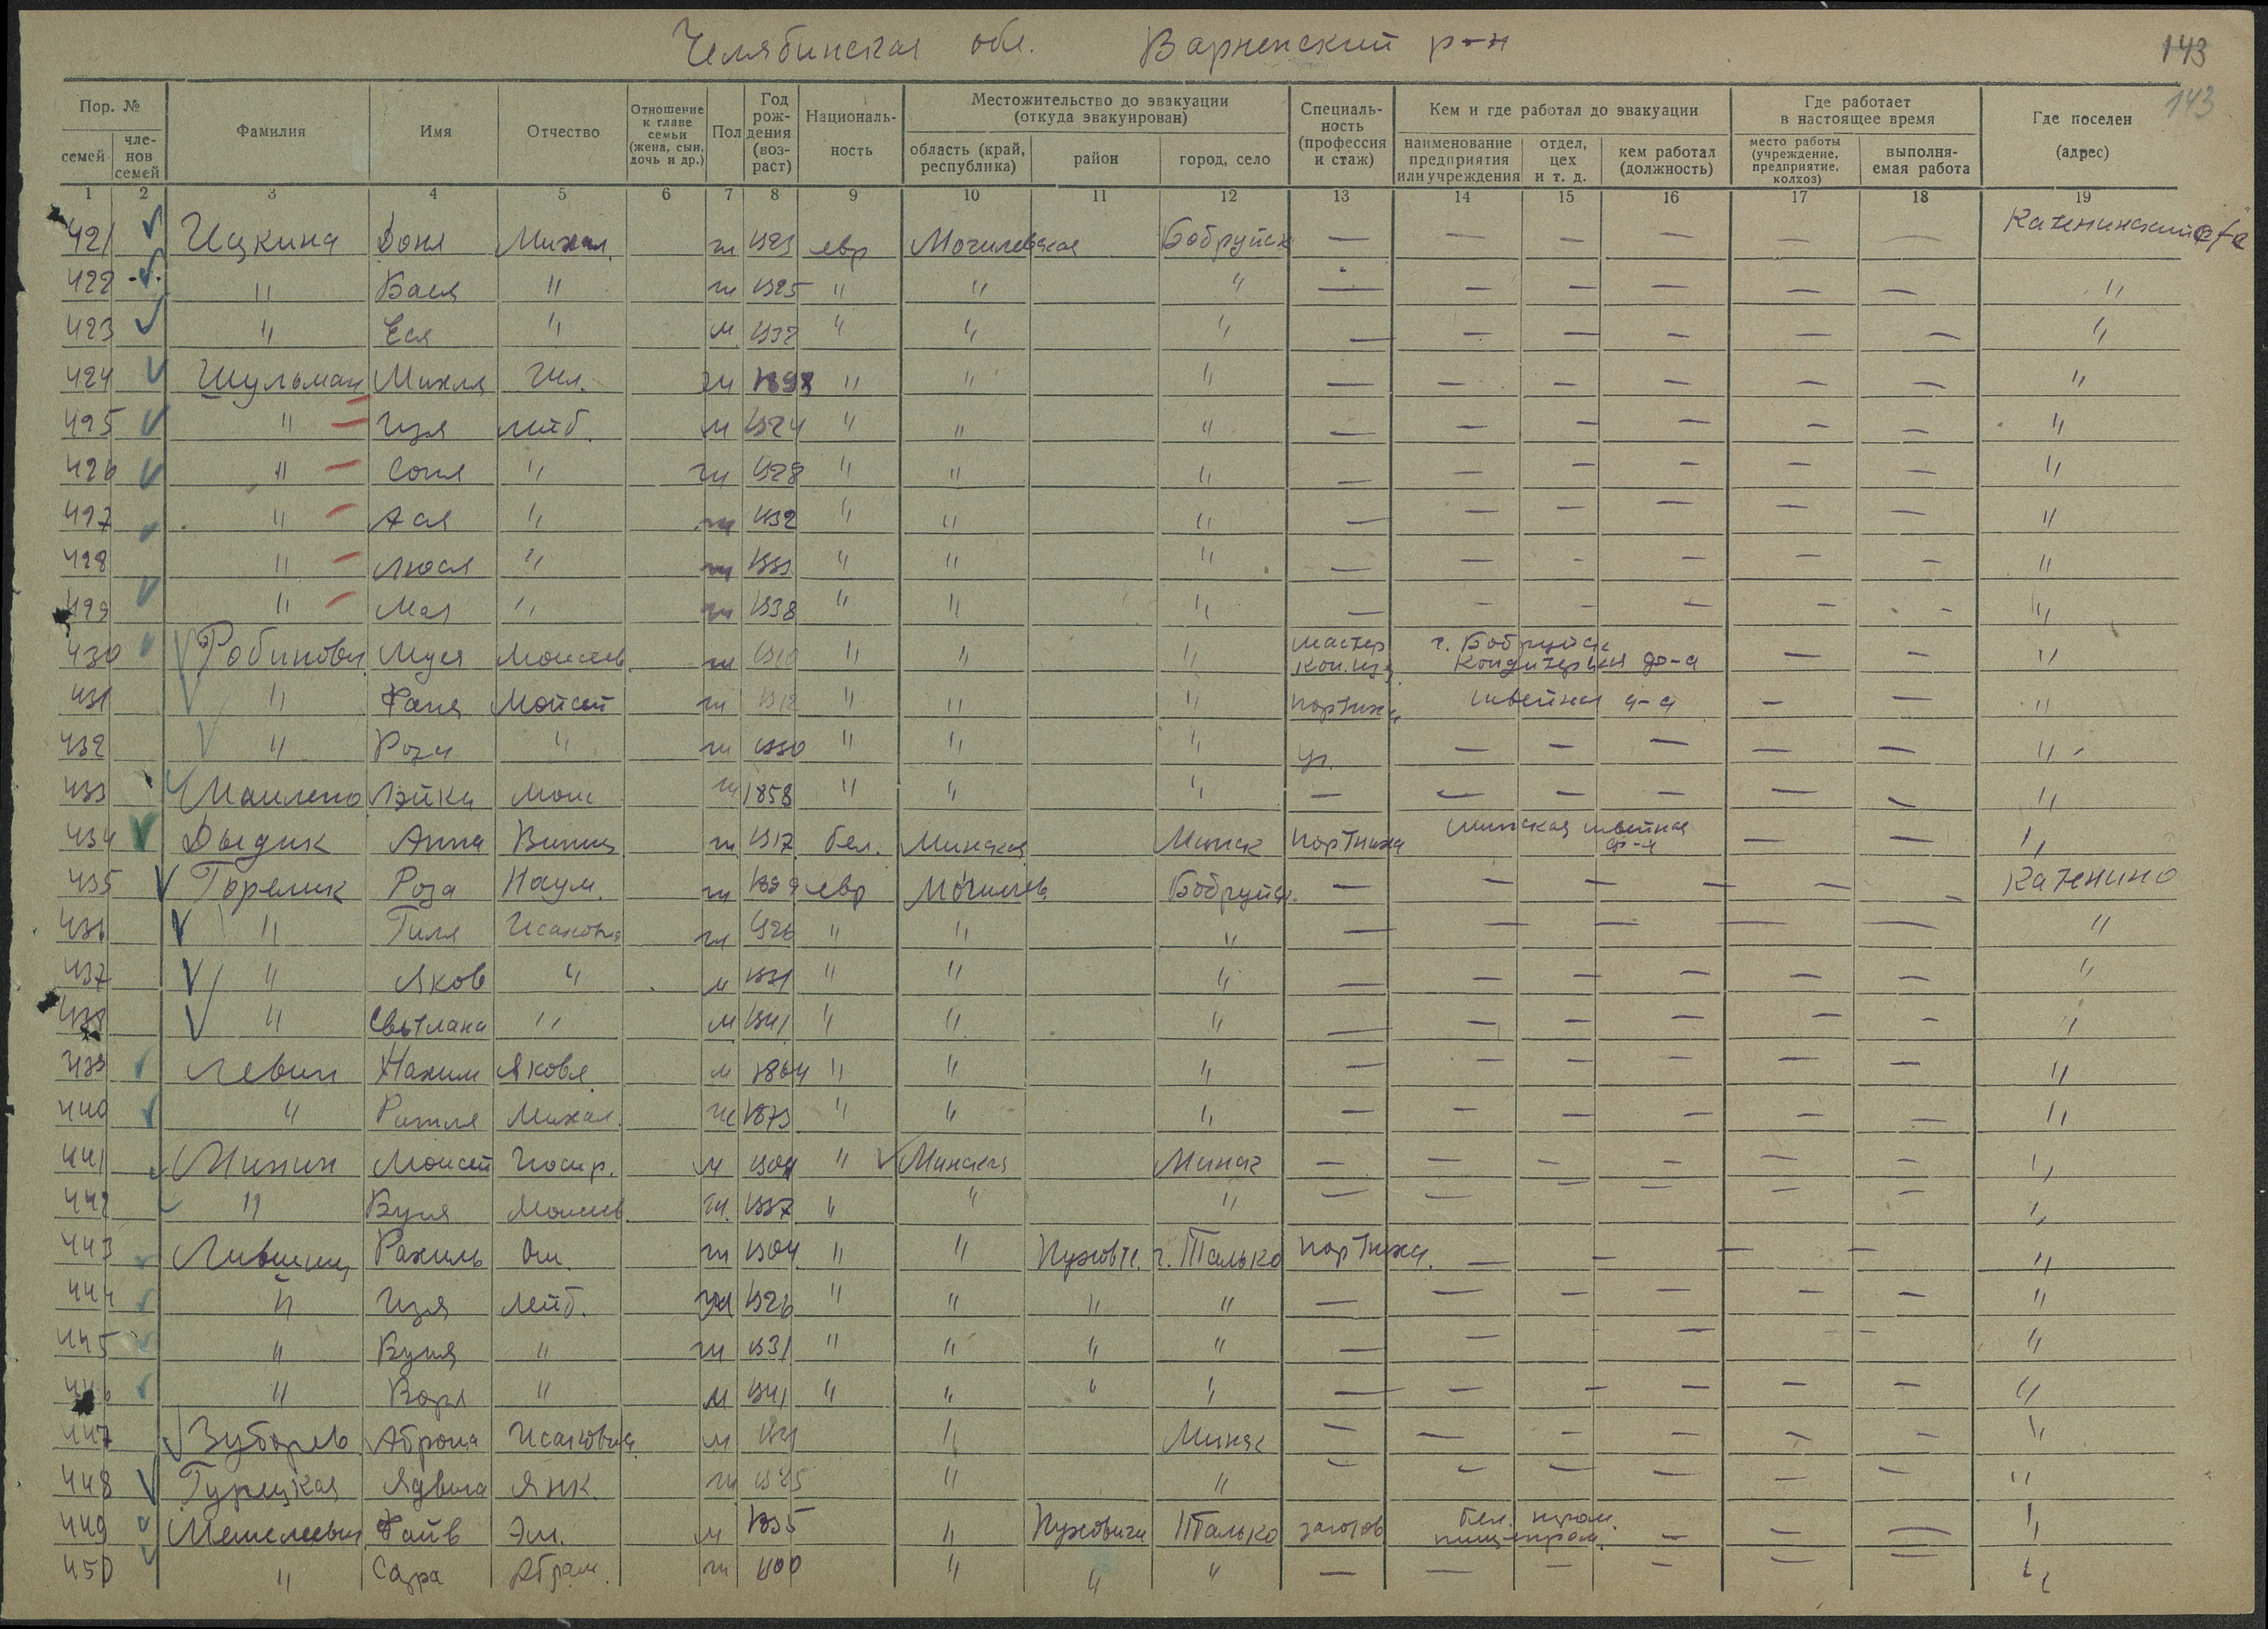 Челябинская обл. Варненский р-н 143
143
Пор. № Фамилия Имя Отчество Отношение к главе семьи (жена, сын, дочь и др.) Пол Год рождения (возраст) Националь-ность Местожительство до эвакуации (откуда эвакуирован) Специаль-ность (профессия и стаж) Кем и где работал до эвакуации Где работает в настоящее время Где поселен (адрес)
семей чле-нов семей область (край, республика) район город, село наименование предприятия или учреждения отдел, цех и т. д. кем работал (должность) место работы (учреждение, предприятие, колхоз) выполня-емая работа
1 2 3 4 5 6 7 8 9 10 11 12 13 14 15 16 17 18 19
421 Ицкина Доня Михал. ж 1923 евр Могилевская Бобруйск — — — — — — Катенинский с/с
422 " Бася " ж 1925 " " " — — — — — — "
423 " Еся " м 1932 " " " — — — — — — "
424 Шульман Михля Ил. ж 1898 " " " — — — — — — "
425 " Изя Лейб. м 1924 " " " — — — — — — "
426 " Соня " ж 1928 " " " — — — — — — "
427 " Ася " ж 1932 " " " — — — — — — "
428 " Люся " ж 1933 " " " — — — — — — "
429 " Мая " ж 1938 " " " — — — — — — "
430 Робинович Муся Моисеев. ж 1910 " " " мастер кон. изд. г. Бобруйск кондитерская ф-а — — "
431 " Фаня Мойсей ж 1912 " " " портниха швейная ф-а — — "
432 " Роза " ж 1930 " " " уч. — — — — — "
433 Лэйка Мои ж 1858 " " " — — — — — — "
434 Дыдик Анна Винц ж 1917 бел. Минская Минск портниха Минская швейная ф-а — — "
435 Горелик Роза Наум. ж 1899 евр Могилев. Бобруйск. — — — — — — Катенино
436 " Гиля Исаковна ж 1926 " " " — — — — — — "
437 " Яков " м 1931 " " " — — — — — — "
438 " Светлана " м 1941 " " " — — — — — — "
439 Левин Нахим Яковл м 1864 " " " — — — — — — "
440 " Михал. ж 1873 " " " — — — — — — "
441 Минин Моисей Иосир. м 1904 " Минская Минск — — — — — — "
442 " Буня Моисеев. ж. 1937 " " " — — — — — — "
443 Лившиц Рахиль Ош. ж 1904 " " Пуховск. г. Талько портниха. — — — — — "
444 " Изя Лейб. м 1926 " " " " — — — — — — "
445 " Буня " ж 1931 " " " " — — — — — "
446 " " м 1941 " " " " — — — — — — "
447 Зуборев Аброша Исакович м " Минск — — — — — — "
448 Турецкая Ядвига Янк. ж 1925 " " — — — — — — "
449 Файв Эл. м " Пуховичи Талько заготов Бел. пром. пищепром. — — — "
450 " Сарра Абрам. ж 1900 " " " — — — — — — "